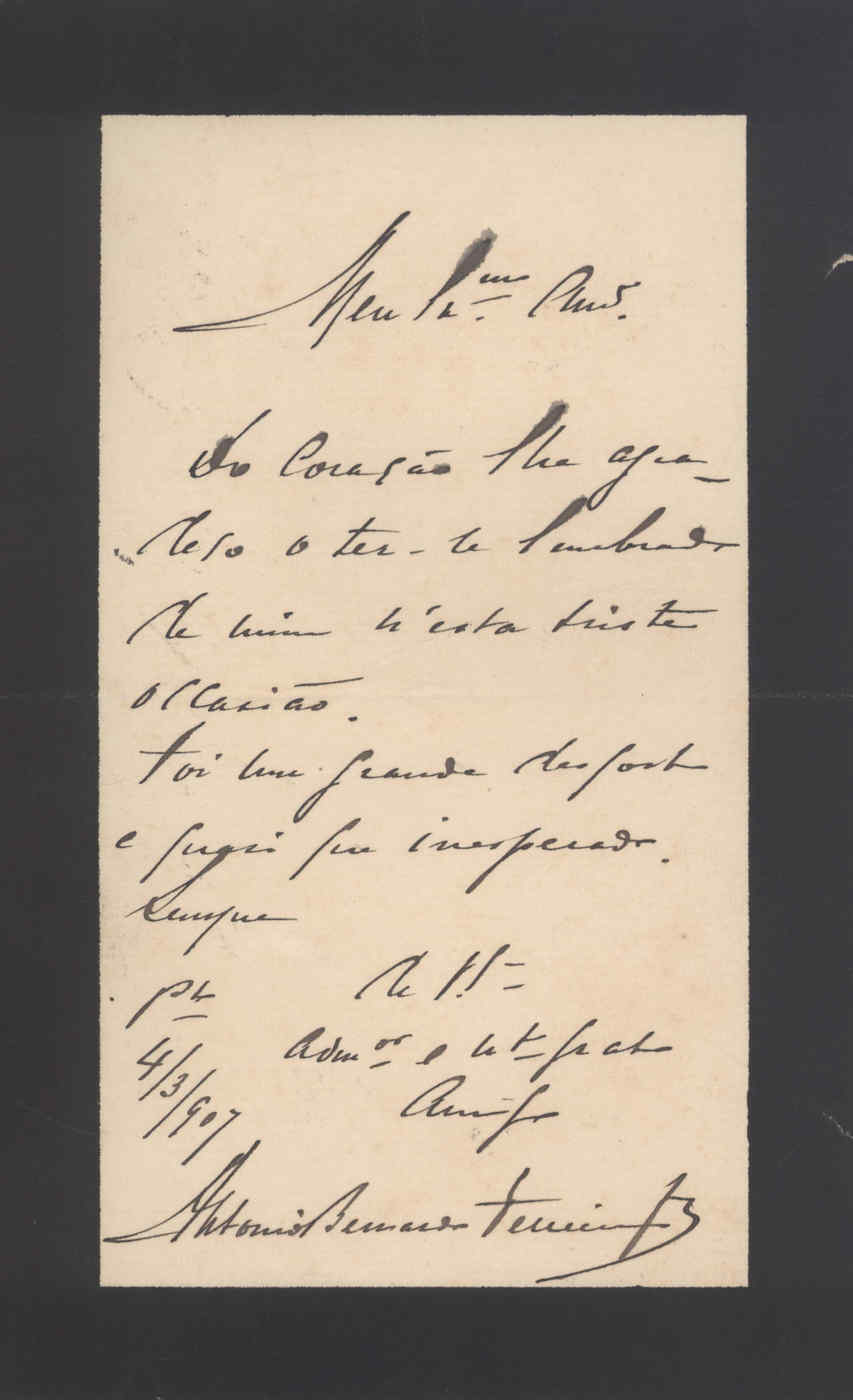 Meu Pr.mo Amo.
Do Coração lhe agra-
deço o ter-se lembrado
de mim n'esta triste
occasião.
Foi um grande desgosto
e quasi que inesperado.
Sempre
de
Pto
Admor e mto grato
4/3/907
Amigo
Antonio Bernardo Ferreira